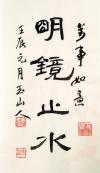 萬事如意
明鏡止水
壬辰元月於山人